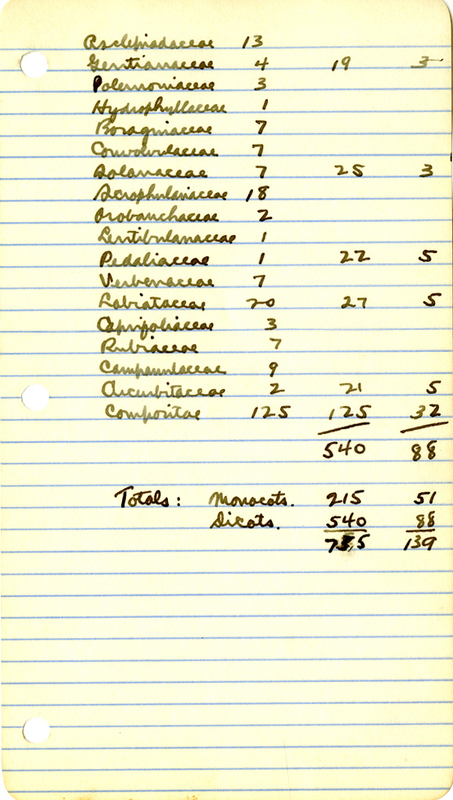 Asclepiadaceae 13
Gentianaceae 4 19 3
Polemoniaceae 3
Hydrophyllaceae 1
Boraginaceae 7
Convolvulaceae 7
Solanaceae 7 25 3
Scrophulariaceae 18
Orobanchaceae 2
Lentibulariaceae 1
Pedaliaceae 1 22 5
Verbenaceae 7
Labiataceae 20 27 5
Caprifoliaceae 3
Rubiaceae 7
Campanulaceae 9
Cucurbitaceae 2 21 5
Compositae 125 125 32
540 88
Totals: Monocots. 215 51
Dicots. 540 88
755 139